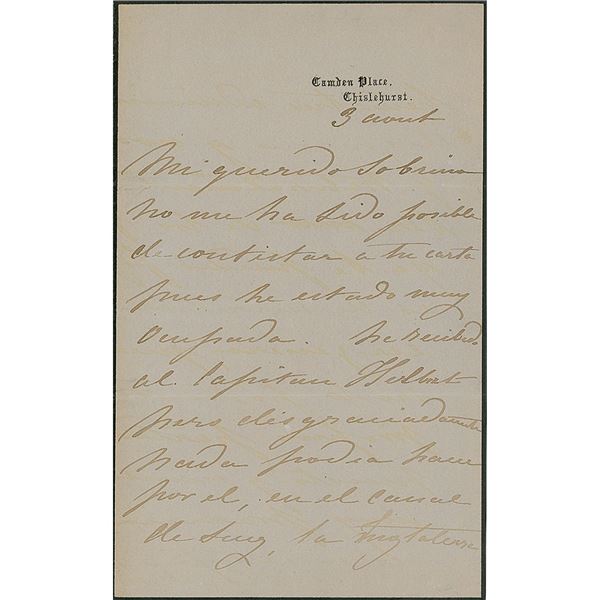 Camden Place.
Chislehurst.
3 aout
Mi querido Sobrino
no me ha sido posible
de contestar a tu carta
pues he estado muy
Ocupada. he recibido
al Capitan
pero desgraciadamente
nada podia hacer
por el, en el canal
de Suez, la Inglaterra